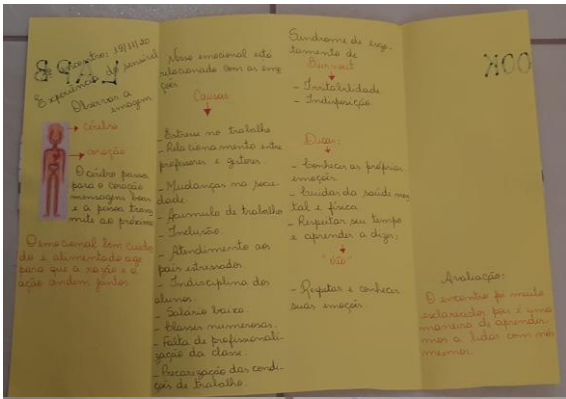 LAPB
3º Encontro: 19/11/20
Experiência do sensível
Observar a
imagem
→ cérebro
→ coração
O cérebro passa
para o coração
mensagens boas
e a pessoa trans
mite ao próximo
O emocional bem cuida
do e alimentado age
para que a razão e a
ação andem juntos.
Nosso emocional está
relacionado com as emo
ções
Causas
Estresse no trabalho
- Relacionamento entre
professores e gestores
- Mudanças na socie
dade.
- Acúmulo de trabalho
- Inclusão.
- Atendimento aos
pais estressados.
- Indisciplina dos
alunos.
- Salário baixo.
- Classes numerosas.
- Falta de profissionali-
zação da classe.
- Precarização das condi-
ções de trabalho.
Síndrome de esgo-
tamento de
Burnout
- Irritabilidade
- Indisposição
Dicas:
- Conhecer as próprias
emoções.
- Cuidar da saúde men
tal e física
- Respeitar seu tempo
e aprender a dizer:
"Não"
- Respeitar e conhecer
suas emoções.
OOK
Avaliação:
O encontro foi muito
esclarecedor pois é uma
maneira de aprender
mos a lidar com nós
mesmos.